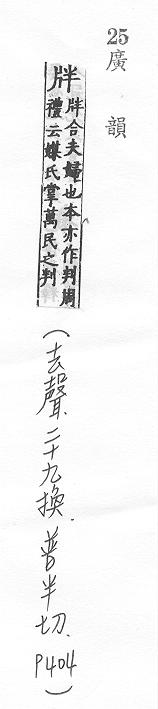 25廣韻
牉
牉合夫婦也本亦作判周
禮云媒氏掌萬民之判
(去聲.二十九換.普半切.P404)